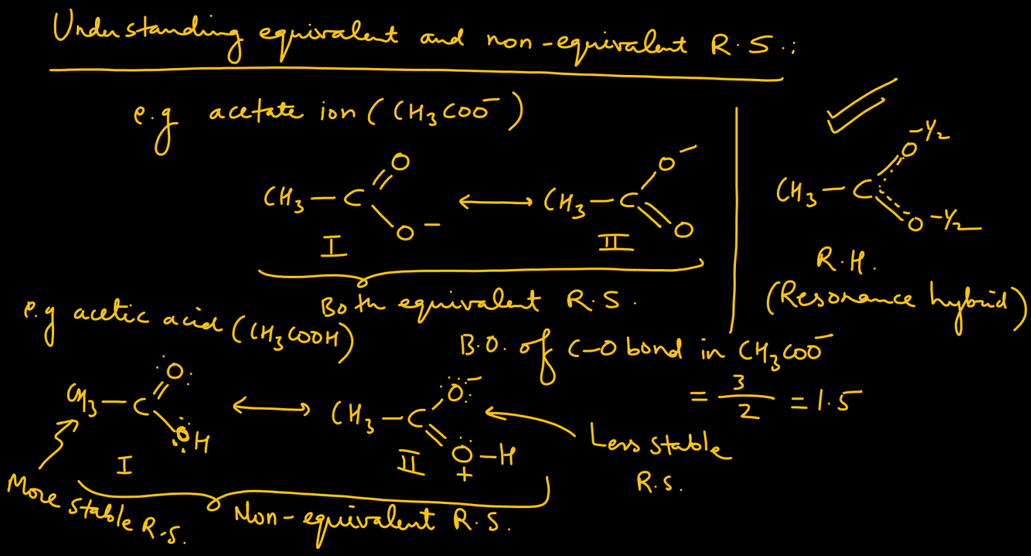 Understanding equivalent and non-equivalent R.S.:
e.g acetate ion (CH3COO⁻)
CH3–C
O
O–
I
CH3–C
O⁻
O
II
Both equivalent R.S.
CH3–C
O -1/2
O -1/2
R.H.
(Resonance hybrid)
e.g acetic acid (CH3COOH)
B.O. of C–O bond in CH3COO⁻
= 3/2 = 1.5
CH3–C
O
OH
I
CH3–C
O⁻
O–H
+
II
Less stable
R.S.
More stable R.S.
Non-equivalent R.S.